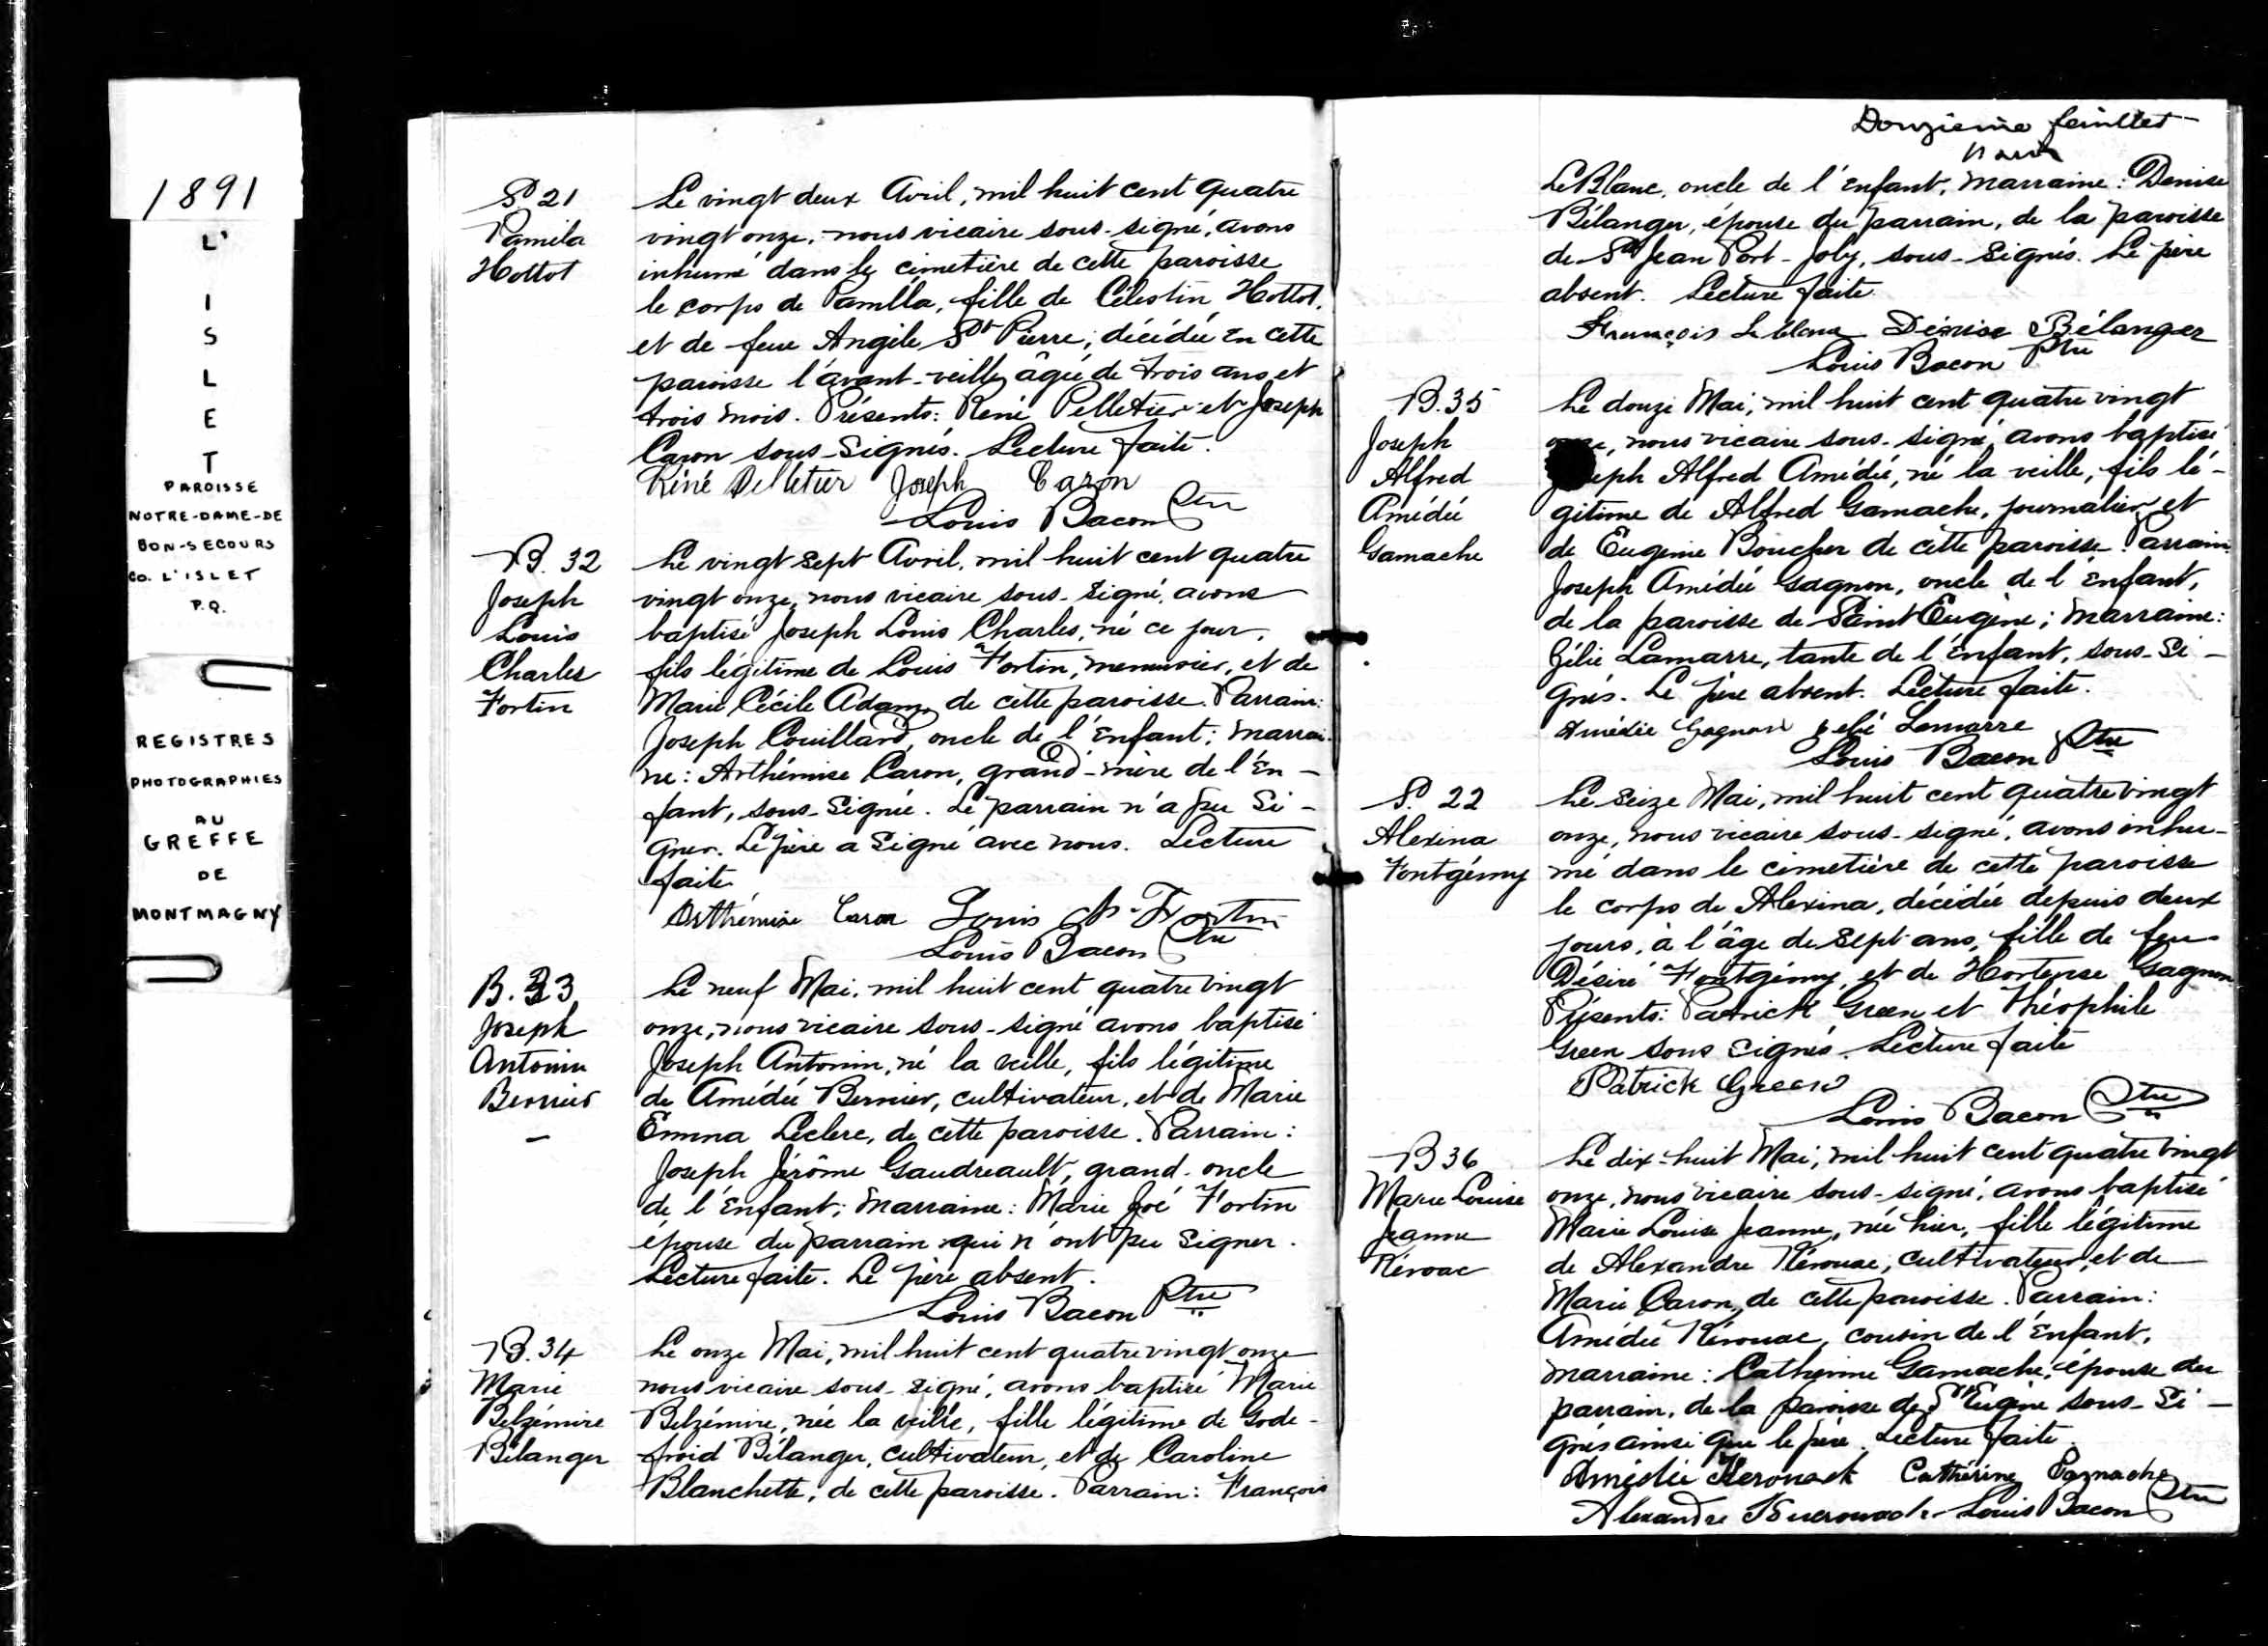 1891
L'
I
S
L
E
T
PAROISSE
NOTRE-DAME-DE
BON-SECOURS
CO. L'ISLET
P.Q.
REGISTRES
PHOTOGRAPHIES
AU
GREFFE
DE
MONTMAGNY
S. 21
Pamila
Hottot
Le vingt deux Avril, mil huit cent quatre
vingt onze, nous vicaire sous-signé, avons
inhumé dans le cimetière de cette paroisse
le corps de Pamila, fille de Célestin Hottot,
et de feue Angèle St Pierre, décédée en cette
paroisse l'avant-veille, âgée de trois ans et
trois mois. Présents: René Pelletier et Joseph
Caron sous-signés. Lecture faite.
Réné Pelletier Joseph Caron
Louis Bacon Ptre
B. 32
Joseph
Louis
Charles
Fortin
Le vingt sept Avril, mil huit cent quatre
vingt onze, nous vicaire sous-signé, avons
baptisé Joseph Louis Charles, né ce jour,
fils légitime de Louis Fortin, menuisier, et de
Marie Cécile Adam, de cette paroisse. Parrain:
Joseph Couillard, oncle de l'enfant; marrai-
ne: Arthémise Caron, grand-mère de l'en-
fant, sous-signée. Le parrain n'a pu si-
gner. Le père a signé avec nous. Lecture
faite
Arthémise Caron Louis Fortin
Louis Bacon Ptre
B. 33
Joseph
Antonin
Bernier
Le neuf Mai, mil huit cent quatre vingt
onze, nous vicaire sous-signé avons baptisé
Joseph Antonin, né la veille, fils légitime
de Amédée Bernier, cultivateur, et de Marie
Emma Leclerc, de cette paroisse. Parrain:
Joseph Jérôme Gaudreault, grand-oncle
de l'enfant; marraine: Marie Zoé Fortin
épouse du parrain qui n'ont pu signer.
Lecture faite. Le père absent.
Louis Bacon Ptre
B. 34
Marie
Belzémire
Bélanger
Le onze Mai, mil huit cent quatre vingt onze
nous vicaire sous-signé, avons baptisé Marie
Belzémire, née la veille, fille légitime de Gode-
froid Bélanger, cultivateur, et de Caroline
Blanchette, de cette paroisse. Parrain: François
Douzième feuillet
LeBlanc, oncle de l'enfant, marraine: Denise
Bélanger, épouse du parrain, de la paroisse
de St Jean Port-Joly, sous-signés. Le père
absent. Lecture faite.
François Leblanc Denise Bélanger
Louis Bacon Ptre
B. 35
Joseph
Alfred
Amédée
Gamache
Le douze Mai, mil huit cent quatre vingt
onze, nous vicaire sous-signé, avons baptisé
Joseph Alfred Amédée, né la veille, fils lé-
gitime de Alfred Gamache, journalier, et
de Eugénie Boucher de cette paroisse. Parrain:
Joseph Amédée Gagnon, oncle de l'enfant,
de la paroisse de Saint Eugène; marraine:
Zélie Lamarre, tante de l'enfant, sous-si-
gnés. Le père absent. Lecture faite.
Amédée Gagnon Zelié Lamarre
Louis Bacon Ptre
S. 22
Alexina
Fontgémy
Le seize Mai, mil huit cent quatre vingt
onze, nous vicaire sous-signé, avons inhu-
mé dans le cimetière de cette paroisse
le corps de Alexina, décédée depuis deux
jours, à l'âge de sept ans, fille de feu
Désiré Fontgémy, et de Hortense Gagnon
Présents: Patrick Green et Théophile
Green sous signés. Lecture faite
Patrick Green
Louis Bacon Ptre
B 36
Marie Louise
Jeanne
Kérouac
Le dix-huit Mai, mil huit cent quatre vingt
onze, nous vicaire sous-signé, avons baptisé
Marie Louise Jeanne, née hier, fille légitime
de Alexandre Kérouac, cultivateur, et de
Marie Caron, de cette paroisse. Parrain:
Amédée Kérouac, cousin de l'enfant,
marraine: Catherine Gamache, épouse du
parrain, de la paroisse de St Eugène sous-si-
gnés ainsi que le père. Lecture faite.
Amédée Kerouack Catherine Gamache
Alexandre Kuerouack Louis Bacon Ptre